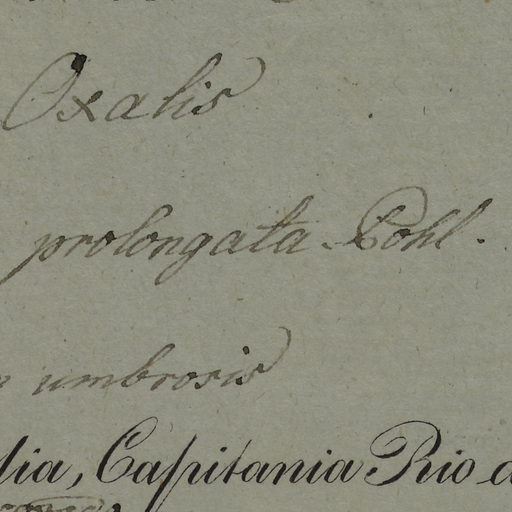 Oxalis
prolongata Pohl.
umbrosis
Capitania Rio